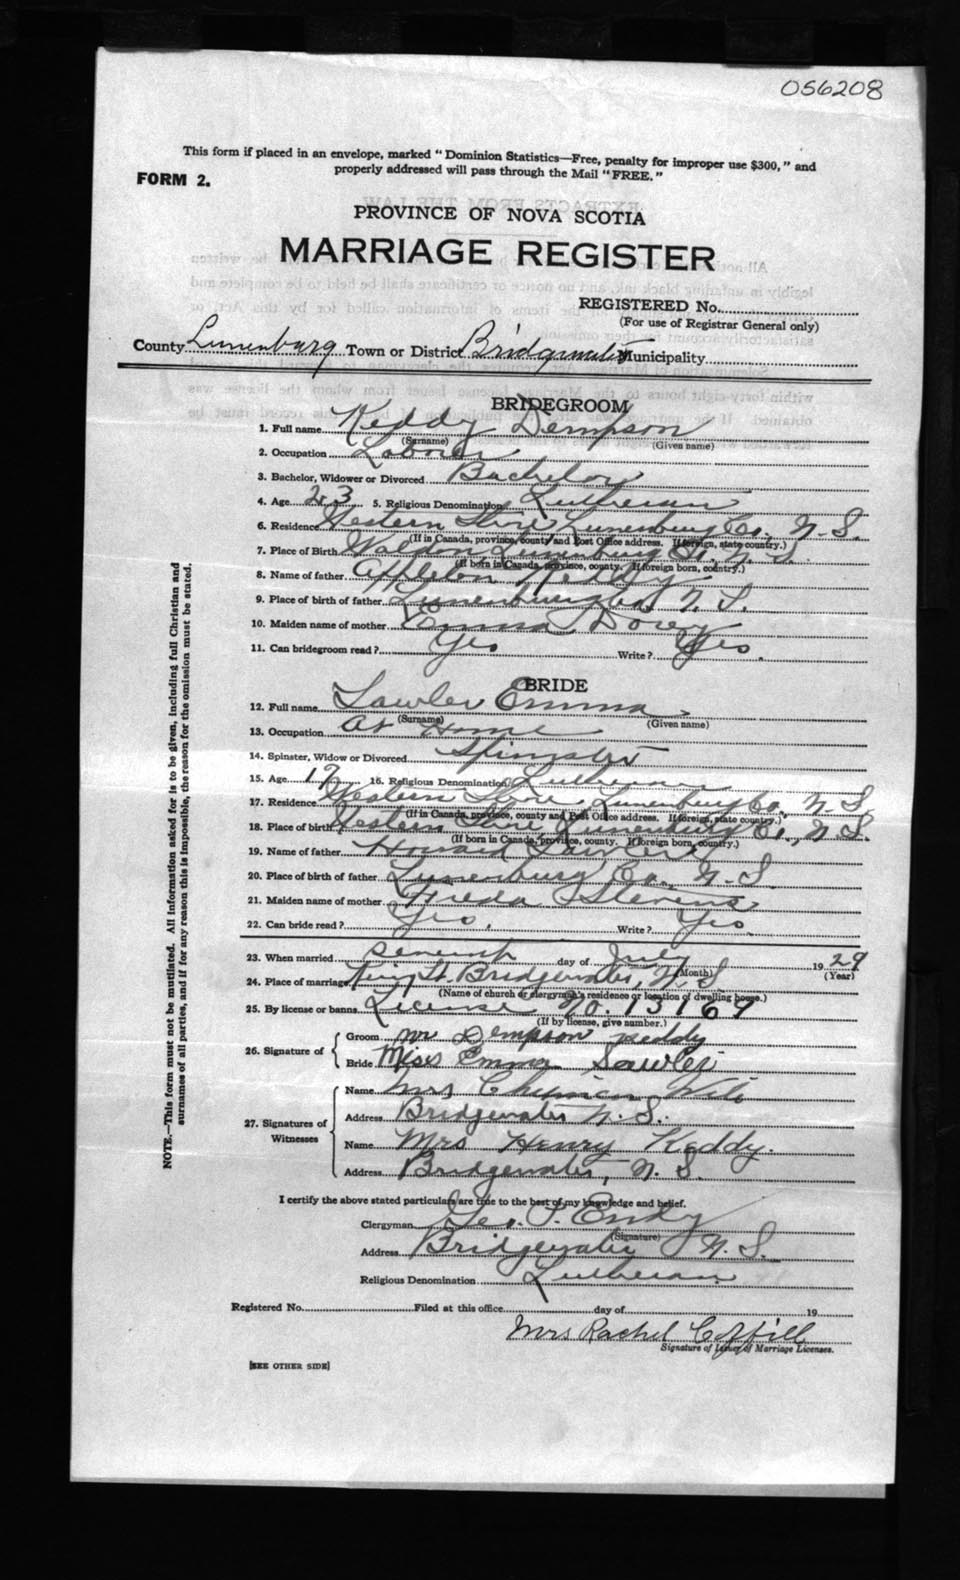 056208
This form if placed in an envelope, marked "Dominion Statistics—Free, penalty for improper use $300," and
properly addressed will pass through the Mail "FREE."
FORM 2.
PROVINCE OF NOVA SCOTIA
MARRIAGE REGISTER
REGISTERED No.
(For use of Registrar General only)
County Lunenburg Town or District Bridgewater Municipality
BRIDEGROOM
1. Full name Keddy Dempson
(Surname) (Given name)
2. Occupation Laborer
3. Bachelor, Widower or Divorced Bachelor
4. Age 23 5. Religious Denomination Lutheran
6. Residence Western Shore Lunenburg Co., N.S.
(If in Canada, province, county and Post Office address. If foreign, state country.)
7. Place of Birth Waldon Lunenburg Co. N.S.
(If born in Canada, province, county. If foreign born, country.)
8. Name of father Appleton Keddy
9. Place of birth of father Lunenburg Co. N.S.
10. Maiden name of mother Emma Dorey
11. Can bridegroom read? Yes Write? Yes.
BRIDE
12. Full name Sawler Emma
(Surname) (Given name)
13. Occupation At Home
14. Spinster, Widow or Divorced Spinster
15. Age 17 16. Religious Denomination Lutheran
17. Residence Western Shore Lunenburg Co. N.S.
(If in Canada, province, county and Post Office address. If foreign, state country.)
18. Place of birth Western Shore Lunenburg Co., N.S.
(If born in Canada, province, county. If foreign born, country.)
19. Name of father Howard Sawler
20. Place of birth of father Lunenburg Co., N.S.
21. Maiden name of mother Freda Stevens
22. Can bride read? Yes. Write? Yes.
23. When married seventh day of July 1929
(Month) (Year)
24. Place of marriage King St. Bridgewater, N.S
(Name of church or clergyman's residence or location of dwelling house.)
25. By license or banns License No. 13169
(If by license, give number.)
26. Signature of Groom Mr Dempson Keddy
Bride Miss Emma Sawler
27. Signatures of Witnesses
Name Mrs
Address Bridgewater N.S.
Name Mrs Henry Keddy.
Address Bridgewater, N.S.
I certify the above stated particulars are true to the best of my knowledge and belief.
Clergyman Geo. P. Endy
(Signature)
Address Bridgewater N.S.
Religious Denomination Lutheran
Registered No. Filed at this office day of 19
Mrs Rachel Coffill
Signature of Issuer of Marriage Licenses.
[SEE OTHER SIDE]
NOTE.—This form must not be mutilated. All information asked for is to be given, including full Christian and
surnames of all parties, and if for any reason this is impossible, the reason for the omission must be stated.